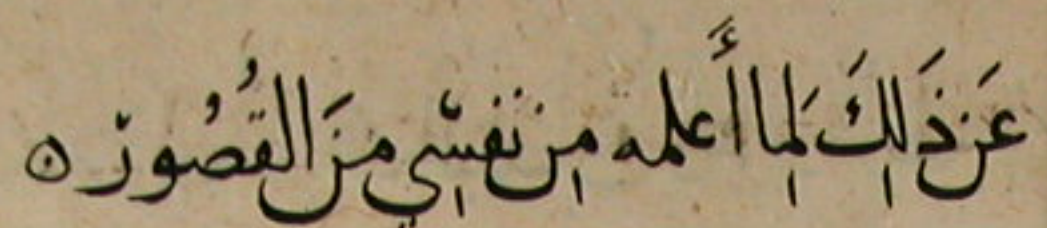 عَن ذَلِكَ لِمَا أَعلمه مِن نَفسْي مِنَ القُصُور ه